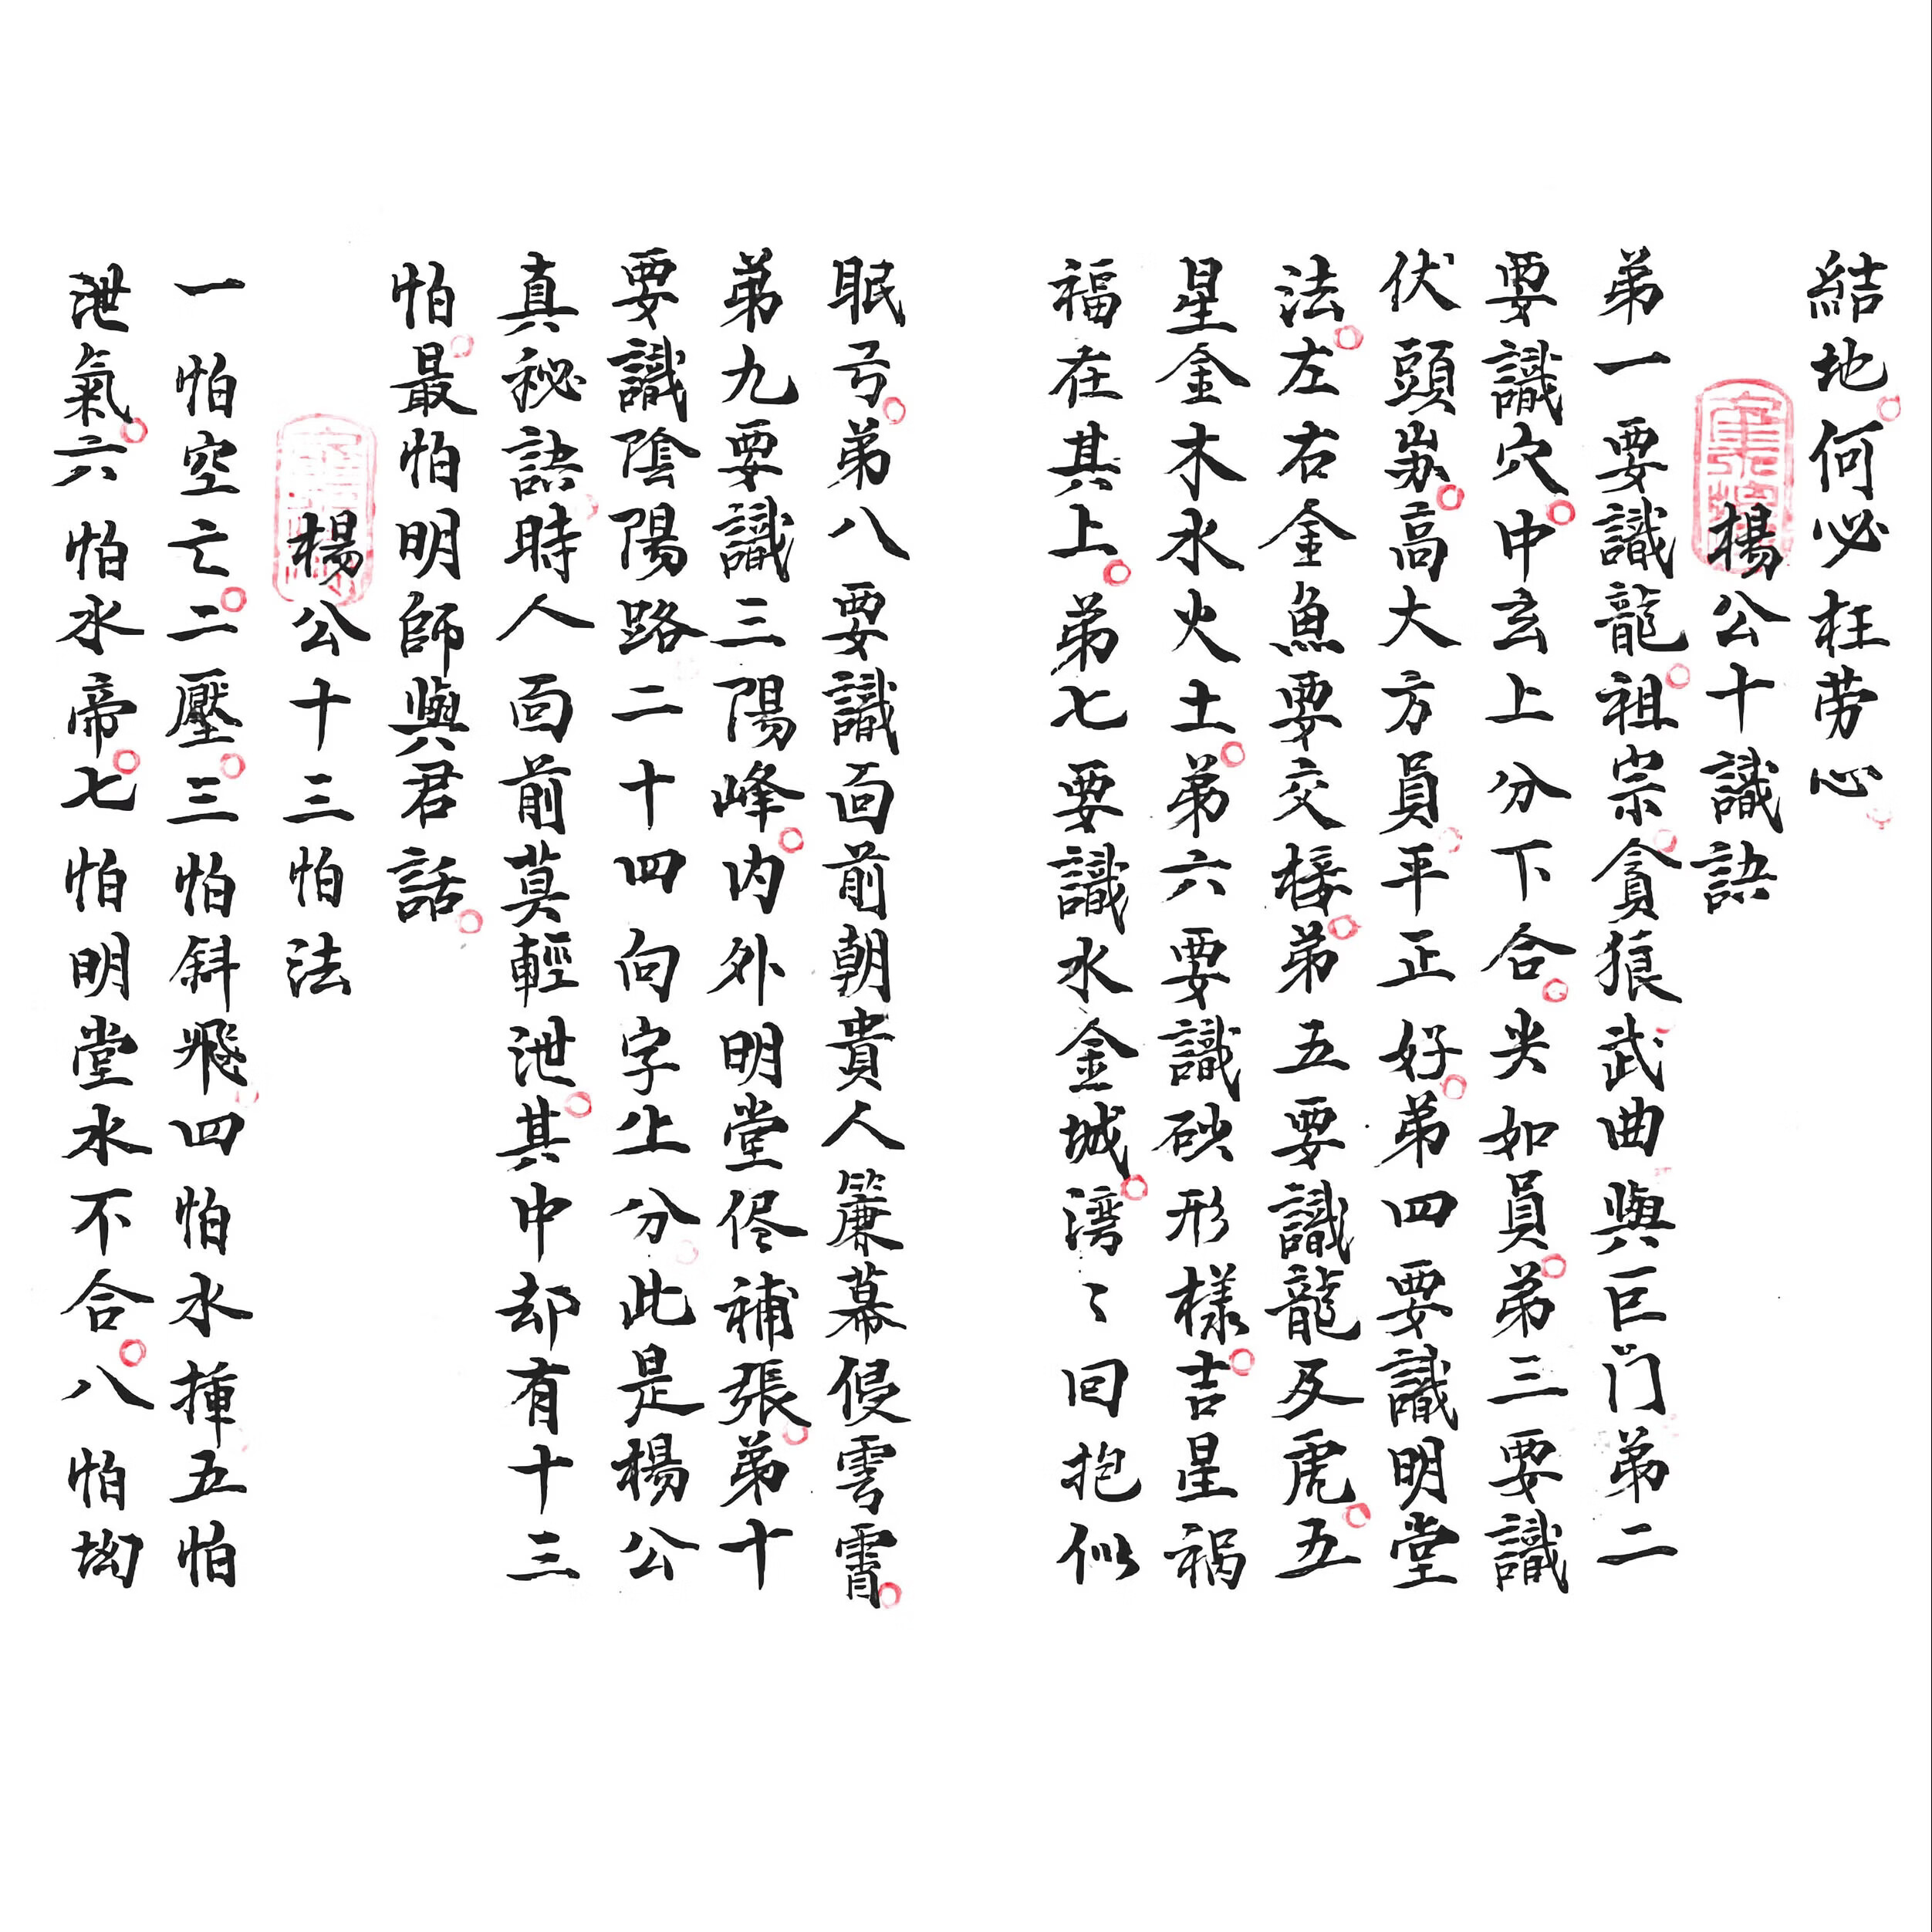 結地何必枉劳心
楊公十識訣
弟一要識龍祖宗貪狼武曲與巨门弟二
要識穴中玄上分下合尖如員弟三要識
伏頭岽高大方員平正好弟四要識明堂
法左右金魚要交椄弟五要識龍及虎五
星金木水火土弟六要識砂形樣吉星禍
福在其上弟七要識水金城湾〻回抱似
眠弓弟八要識面前朝貴人簾幕侵雲霄
弟九要識三陽峰内外明堂侭補張弟十
要識陰陽路二十四向字止分此是楊公
真秘訣時人面前莫輕泄其中却有十三
怕最怕明師與君話
楊公十三怕法
一怕空亡二壓三怕斜飛四怕水揰五怕
泄氣六怕水帝七怕明堂水不合八怕坳